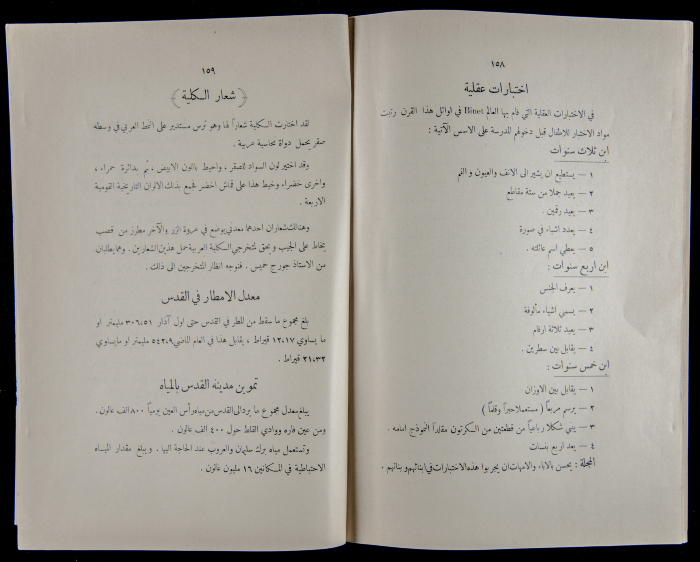 ١٥٨
اختبارات عقلية
في الاختبارات العقلية التي قام بها العالم Binet في اوائل هذا القرن رتبت
مواد الاختبار للاطفال قبل دخولهم المدرسة على الاسس الآتية :
ابن ثلاث سنوات
١ — يستطيع ان يشير الى الانف والعيون و الفم
٢ — يعيد جملا من ستة مقاطع
٣ — يعيد رقمين .
٤ — يعدد اشياء في صورة
٥ — يعطي اسم عائلته .
ابن اربع سنوات :
١ — يعرف الجنس
٢ — يسمي اشياء مألوفة
٣ — يعيد ثلاثة ارقام
٤ — يقابل بين سطرين .
ابن خمس سنوات :
١ — يقابل بين الاوزان
٢ — يرسم مربعاً ( مستعملا حبراً وقلماً )
٣ — يبني شكلا رباعياً من قطعتين من الكرتون مقلداً النموذج امامه .
٤ — يعد اربع بنسات
المجلة : يحسن بالاباء والامهات ان يجربوا هذه الاختبارات في ابنائهم و بناتهم .
١٥٩
﴿ شعار الكلية ﴾
لقد اختارت الكلية شعاراً لها وهو ترس مستدير على النمط العربي في وسطه
صقر يحمل دواة نحاسية عربية .
وقد اختير لون السواد للصقر ، واحيط باللون الابيض ، ثم بدائرة حمراء ،
واخرى خضراء وخيط هذا على قماش اخضر لجمع بذلك الالوان التاريخية القومية
الاربعة .
وهنالك شعاران احدهما معدني يوضع في عروة الزر والآخر مطرز من قصب
يخاط على الجيب و يحق لمتخرجي الكلية العربية حمل هذين الشعارين . وهما يطلبان
من الاستاذ جورج خميس . فنوجه انظار المتخرجين الى ذلك .
معدل الامطار في القدس
بلغ مجموع ما سقط من المطر في القدس حتى اول آذار ٣٠٦،٥١ مليمتر او
ما يساوي ١٢،١٧ قيراط ، يقابل هذا في العام الماضي ٥٤٢،٩ مليمتر او مايساوي
٢١،٣٢ قيراط .
تموين مدينة القدس بالمياه
يبلغ معدل مجموع ما يرد الى القدس من مياه رأس العين يومياً ٨٠٠ الف غالون .
ومن عين فاره ووادي القلط حول ٤٠٠ الف غالون .
وتستعمل مياه برك سليمان والعروب عند الحاجة اليها . و يبلغ مقدار المياه
الاحتياطية في المكانين ١٦ مليون غالون .